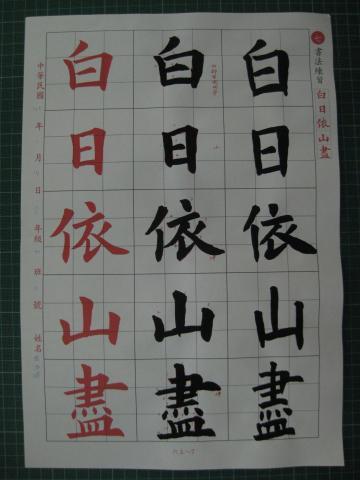 七 書法練習 白日依山盡
白日依山盡
白日依山盡
白日依山盡
中華民國 年 月 日 年級 班 號 姓名